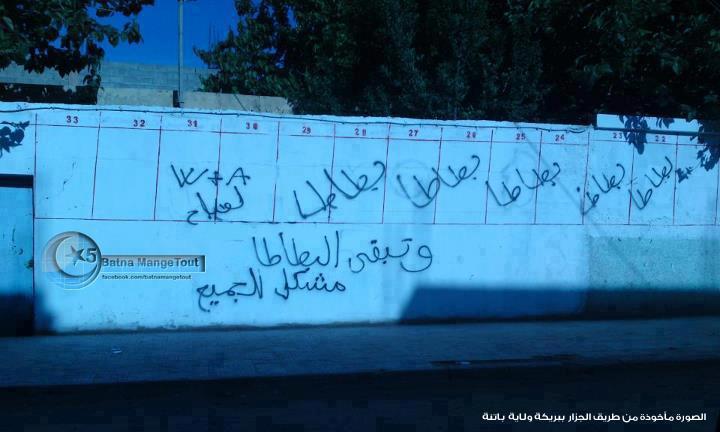 33 32 31 30 29 28 27 26 25 24 23 22
بطاطا بطاطا بطاطا بطاطا بطاطا بطاطا
W+A
وتبقى البطاطا
مشكل الجميع
x5 Batna MangeTout
facebook.com/batnamangetout
الصورة مأخوذة من طريق الجزار ببريكة ولاية باتنة